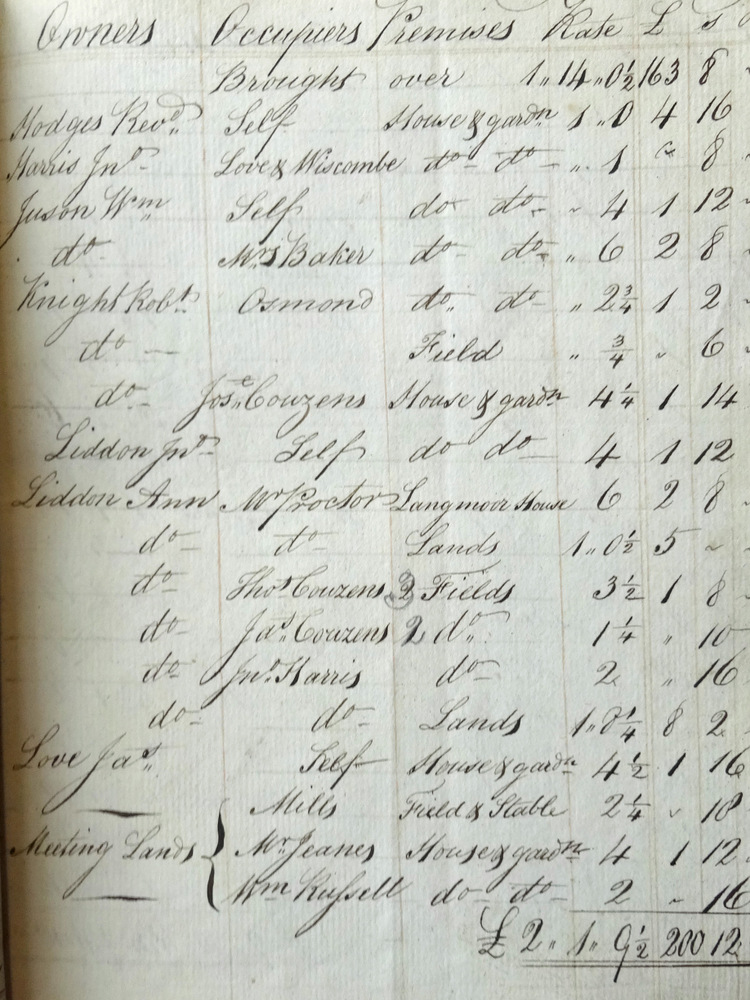 Owners Occupiers Premises Rate £ s
Brought over 1 „ 14 „ 0½ 163 8
Hodges Revd. Self House & gardn 1 „ 0 4 16
Harris Jno. Love & Wiscombe do do „ 1 „ 8
Juson Wm Self do do „ 4 1 12
do Mrs Baker do do „ 6 2 8
Knight Robt. Osmond do do „ 2¾ 1 2
do Field „ ¾ „ 6
do Jose. Couzens House & gardn 4¼ 1 14
Liddon Jno. Self do do 4 1 12
Liddon Ann Mr Proctor Langmoor House 6 2 8
do do Lands 1 „ 0½ 5 „
do Thos Couzens 2 Fields 3½ 1 8
do Jas. Couzens 2 do. 1¼ „ 10
do Jno. Harris do 2 „ 16
do do Lands 1 „ 8¼ 8 2
Love Jas. Self House & gardn 4½ 1 16
Mills Field & Stable 2¼ „ 18
Meeting Lands Mr Jeanes House & gardn 4 1 12
Wm Russell do do 2 „ 16
£ 2 „ 1 „ 9½ 200 12